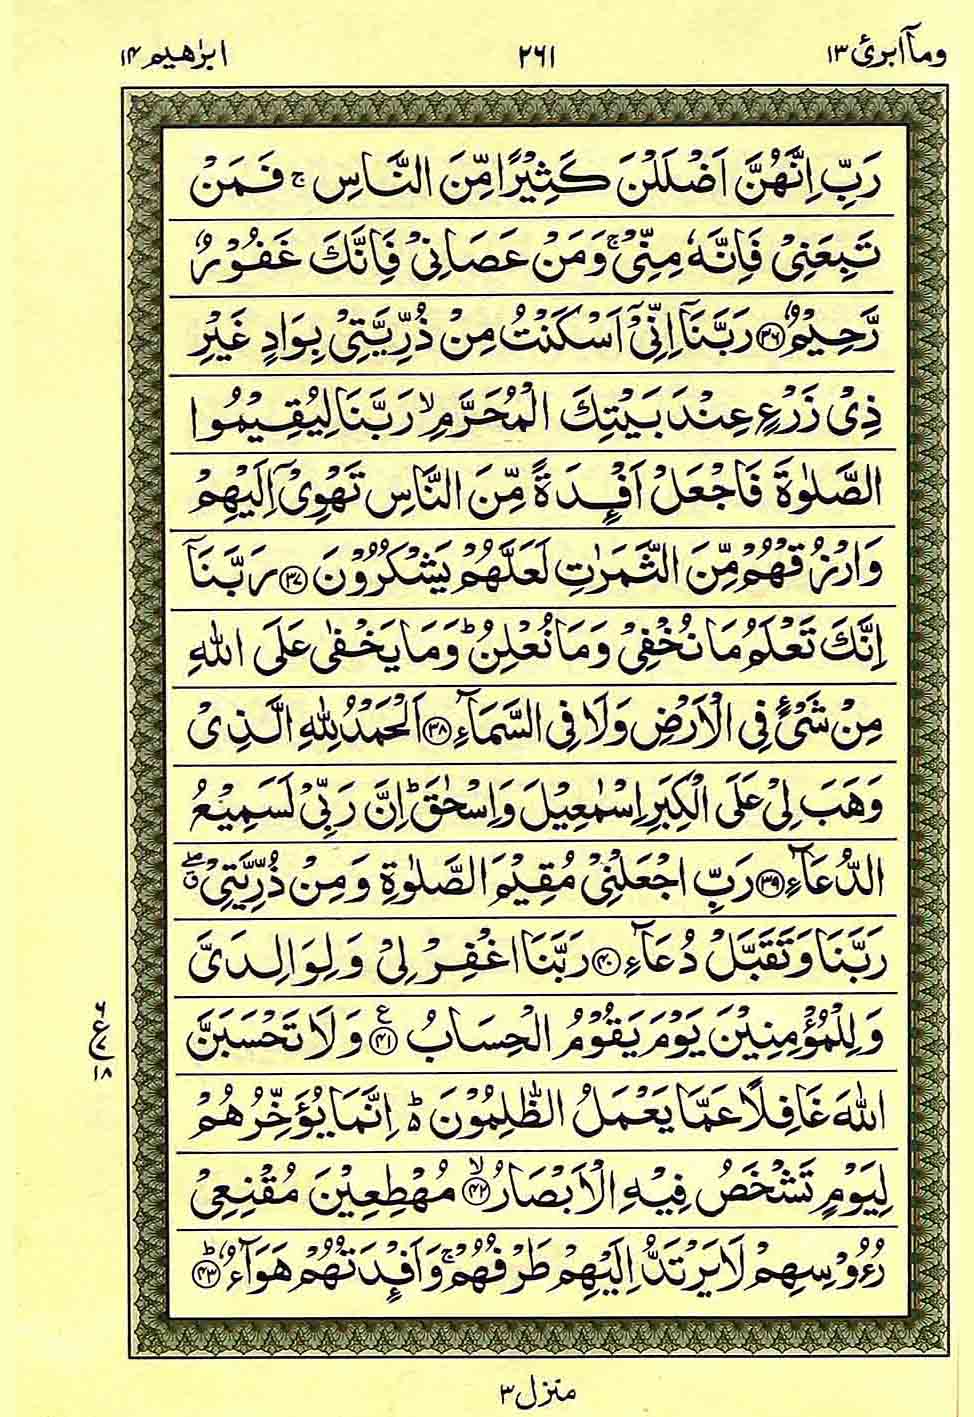 وماۤ ابرئ ١٣
٢٦١
ابرٰهيم ١٤
رَبِّ اِنَّهُنَّ اَضْلَلْنَ كَثِيْرًا مِّنَ النَّاسِ ۚ فَمَنْ
تَبِعَنِيْ فَاِنَّهٗ مِنِّيْ ۚ وَمَنْ عَصَانِيْ فَاِنَّكَ غَفُوْرٌ
رَّحِيْمٌ ﴿٣٦﴾ رَبَّنَاۤ اِنِّيْۤ اَسْكَنْتُ مِنْ ذُرِّيَّتِيْ بِوَادٍ غَيْرِ
ذِيْ زَرْعٍ عِنْدَ بَيْتِكَ الْمُحَرَّمِ ۙ رَبَّنَا لِيُقِيْمُوا
الصَّلٰوةَ فَاجْعَلْ اَفْئِدَةً مِّنَ النَّاسِ تَهْوِيْۤ اِلَيْهِمْ
وَارْزُقْهُمْ مِّنَ الثَّمَرٰتِ لَعَلَّهُمْ يَشْكُرُوْنَ ﴿٣٧﴾ رَبَّنَاۤ
اِنَّكَ تَعْلَمُ مَا نُخْفِيْ وَمَا نُعْلِنُ ؕ وَمَا يَخْفٰى عَلَى اللّٰهِ
مِنْ شَيْءٍ فِي الْاَرْضِ وَلَا فِي السَّمَآءِ ﴿٣٨﴾ اَلْحَمْدُ لِلّٰهِ الَّذِيْ
وَهَبَ لِيْ عَلَى الْكِبَرِ اِسْمٰعِيْلَ وَاِسْحٰقَ ؕ اِنَّ رَبِّيْ لَسَمِيْعُ
الدُّعَآءِ ﴿٣٩﴾ رَبِّ اجْعَلْنِيْ مُقِيْمَ الصَّلٰوةِ وَمِنْ ذُرِّيَّتِيْ ۖق
رَبَّنَا وَتَقَبَّلْ دُعَآءِ ﴿٤٠﴾ رَبَّنَا اغْفِرْ لِيْ وَلِوَالِدَيَّ
وَلِلْمُؤْمِنِيْنَ يَوْمَ يَقُوْمُ الْحِسَابُ ﴿٤١﴾ ع وَلَا تَحْسَبَنَّ
٦
ع ٧
١٨
اللّٰهَ غَافِلًا عَمَّا يَعْمَلُ الظّٰلِمُوْنَ ؕ اِنَّمَا يُؤَخِّرُهُمْ
لِيَوْمٍ تَشْخَصُ فِيْهِ الْاَبْصَارُ ﴿٤٢﴾ ۙ مُهْطِعِيْنَ مُقْنِعِيْ
رُءُوْسِهِمْ لَا يَرْتَدُّ اِلَيْهِمْ طَرْفُهُمْ ۚ وَاَفْئِدَتُهُمْ هَوَآءٌ ﴿٤٣﴾ ؕ
منزل ٣